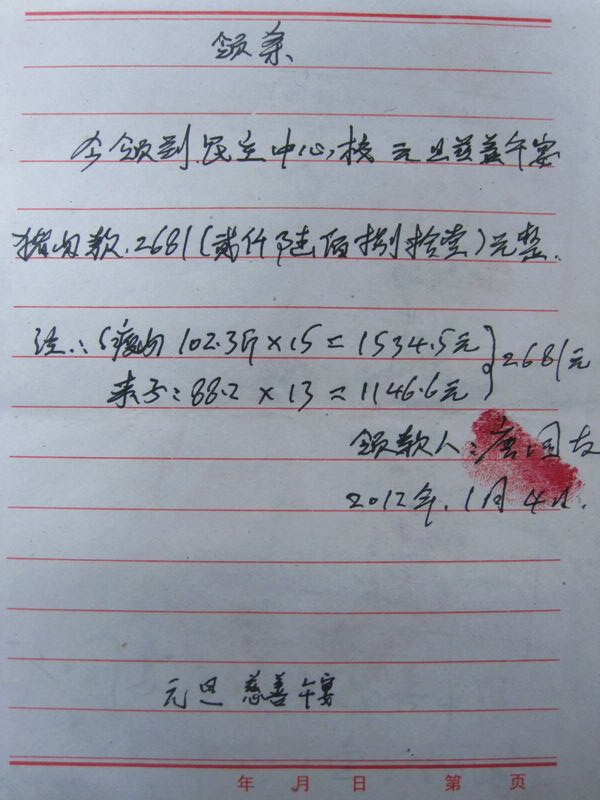 领条
今领到民主中心校元旦慈善午宴
猪肉款.2681(贰仟陆佰捌拾壹)元整.
注:(瘦肉 102.3斤×15=1534.5元
}2681元
:88.2×13=1146.6元
领款人:唐国友
2012年.1月4日.
元旦慈善午宴
年 月 日 第 页